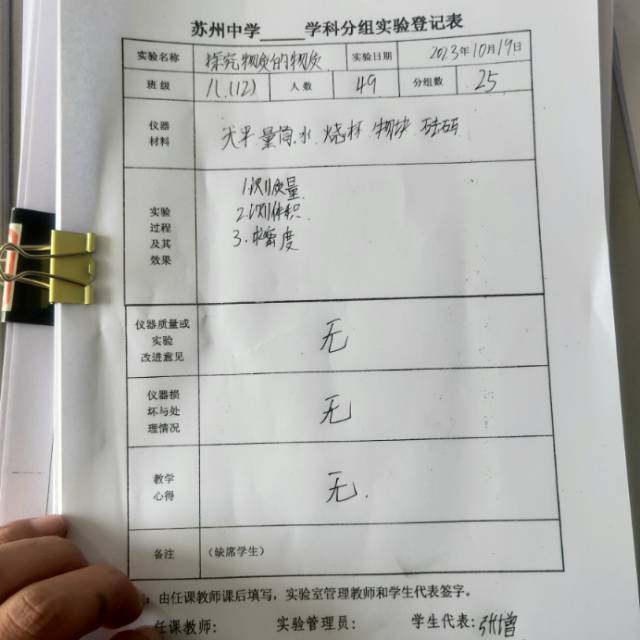 苏州中学____学科分组实验登记表
实验名称 探究物质的物质 实验日期 2023年10月19日
班级 八(12) 人数 49 分组数 25
仪器材料 天平 量筒.水.烧杯 物块 砝码
实验过程及其效果
1.测质量
2.测体积
3.求密度
仪器质量或实验改进意见 无
仪器损坏与处理情况 无
教学心得 无.
备注 (缺席学生)
由任课教师课后填写，实验室管理教师和学生代表签字。
任课教师: 实验管理员: 学生代表: